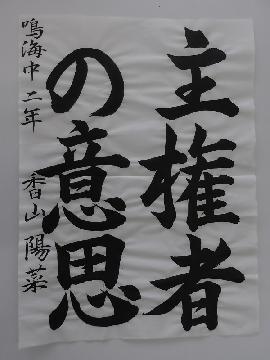 主権者
の意思
鳴海中二年 香山陽菜